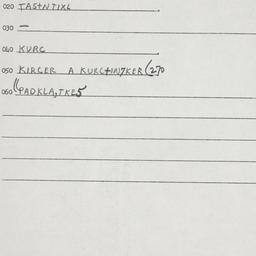 020 TASTNTIXL
030 —
040 KURG
050 KIRGER A KURG+IN7KER (270
060 "PADKLA,TKES